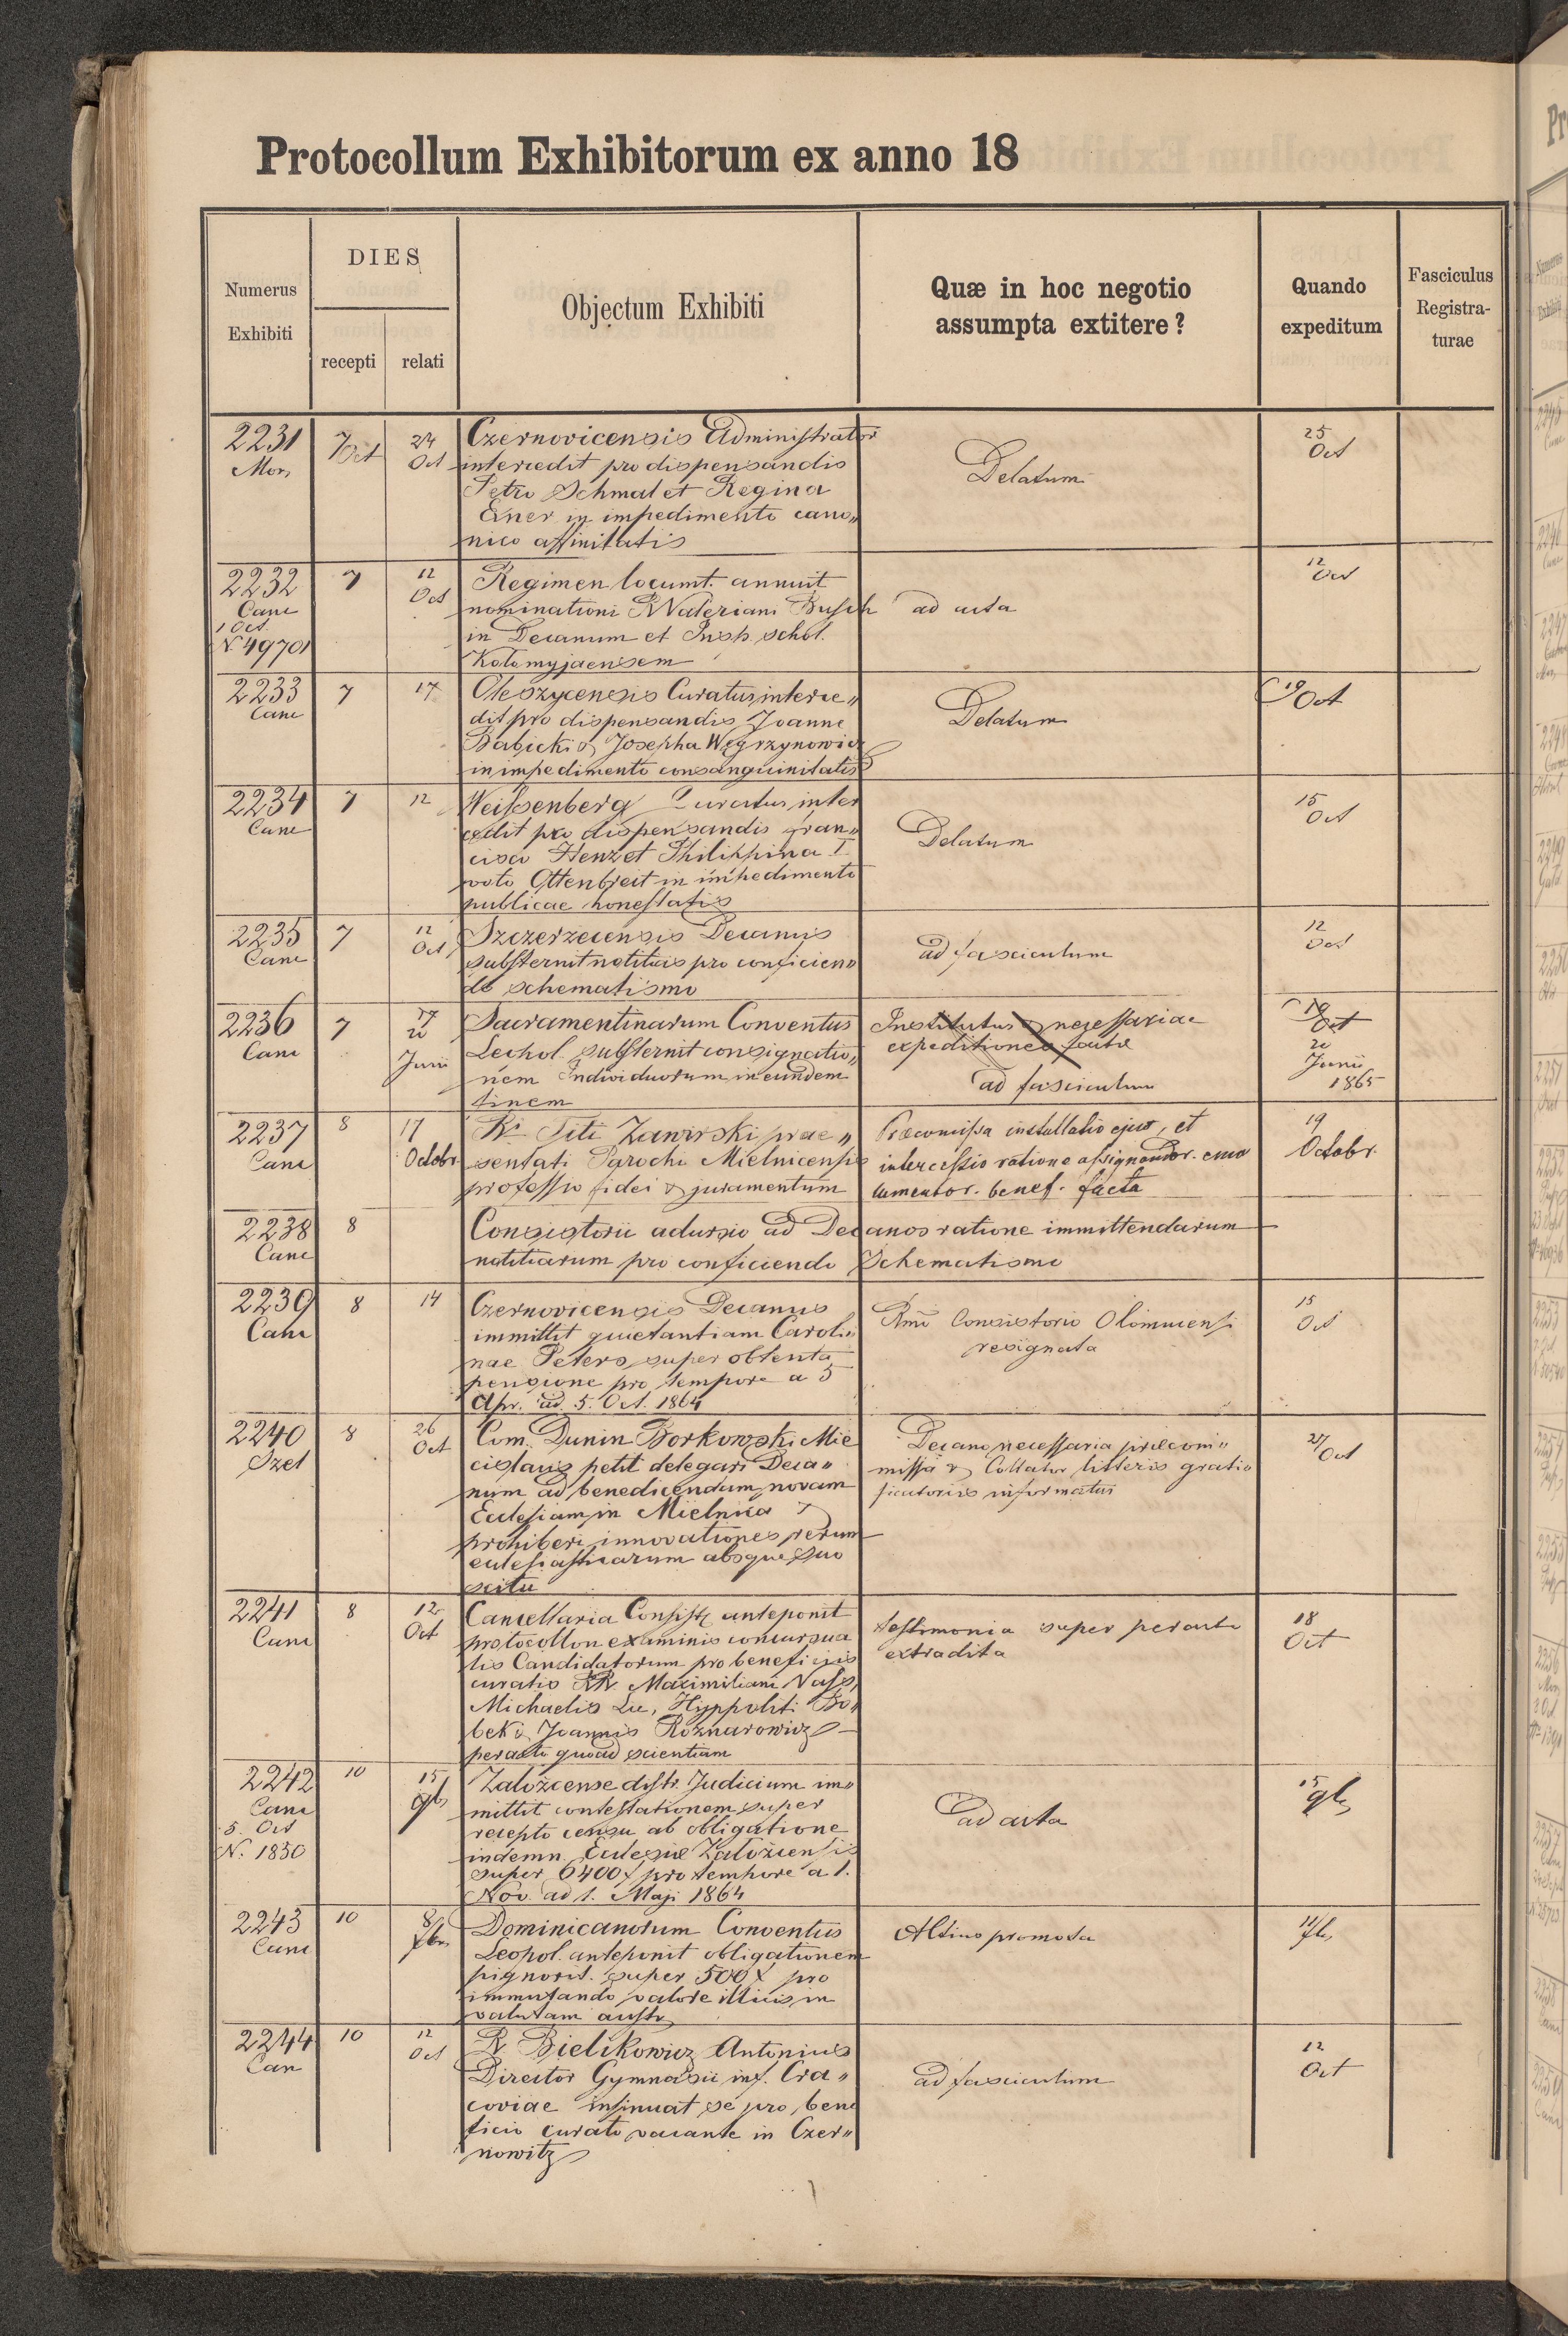 Protocollum Exhibitorum ex anno 18
Numerus
Exhibiti
DIES
recepti
relati
Objectum Exhibiti
Quæ in hoc negotio
assumpta extitere?
Quando
expeditum
Fasciculus
Registra-
turae
2231
Mor,
7 Oct
24
Oct
Czernovicensis Administrator
intercedit pro dispensandis
Petro Schmal et Regina
Exner in impedimento cano„
nico affinitatis
Delatum
25
Oct
2232
Canc
1 Oct.
N. 49701
7
12
Oct
Regimen locumt. annuit
nominationi R Waleriani Busch
in Decanum et Insp. schol.
Kołomyjaensem
ad acta
12
Oct
2233
Canc
7
17
Oleszycensis Curatus interce„
dit pro dispensandis Joanne
Babicki & Josepha Węgrzynowicz
in impedimento consanguinitatis
Delatum
19 Oct
2234
Canc
7
12
Weissenberg Curatus inter
cedit pro dispensandis Fran„
cisco Henz et Philippina I
voto Ottenbreit in impedimento
publicae honestatis
Delatum
15
Oct
2235
Canc
7
12
Oct
Szczerzecensis Decanus
substernit notitias pro conficien„
do schematismo
ad fasciculum
12
Oct
2236
Canc
7
17
20
Junii
Sacramentinarum Conventus
Leopol. substernit consignatio„
nem Individuorum in eundem
finem
Institutus & necessariae
expeditiones factae
ad fasciculum
19
Oct
20
Junii
1865
2237
Canc
8
17
Octobr
Ri Titi Zawirski prae„
sentati Parochi Mielnicensis
professio fidei & juramentum
Præcomissa installatio ejus, et
intercessio ratione assignandor. emo
lumentor. benef. facta
19
Octobr.
2238
Canc
8
Consistorii adursio ad Decanos ratione immittendarum
notitiarum pro conficiendo Schematismo
2239
Canc
8
14
Czernovicensis Decanus
immittit quietantiam Caroli„
nae Peters super obtenta
pensione pro tempore a 5
Apr. ad 5. Oct. 1864
Rmo Consistorio Olomucensi
resignata
15
Oct
2240
Szel
8
26
Oct
Com. Dunin Borkowski Mie
cislaus petit delegari Deca„
num ad benedicendum novam
Ecclesiam in Mielnica &
prohiberi innovationes rerum
ecclesiasticarum absque suo
scitu
Decano necessaria præcom„
missa & Collator litteris grati„
ficatoriis informatus
27
Oct
2241
Canc
8
12
Oct
Cancellaria Consist. anteponit
protocollon examinis concursua
lis Candidatorum pro beneficiis
curatis RR Maximiliani Nass,
Michaelis Lic, Hyppoliti Bo„
bek & Joannis Roznarowicz
peracto quoad scientiam
testimonia super peracto
extradita
18
Oct
2242
Canc
5. Oct
N. 1850
10
15
9b,
Załozcense distr. Judicium im„
mittit contestationem super
recepto censu ab obligatione
indemn. Ecclesiæ Załoziensis
super 6400 f pro tempore a 1.
Nov. ad 1. Maji 1864
ad acta
15
9b,
2243
Canc
10
8
Dominicanorum Conventus
Leopol. anteponit obligationem
pignorit. super 500 f pro
immutando valore illius in
valutam austr.
Altius promota
2244
Can
10
12
Oct
R. Bielikowicz Antonius
Director Gymnasii inf. Cra„
coviae insinuat se pro bene
ficio curato vacante in Czer„
nowitz
ad fasciculum
12
Oct